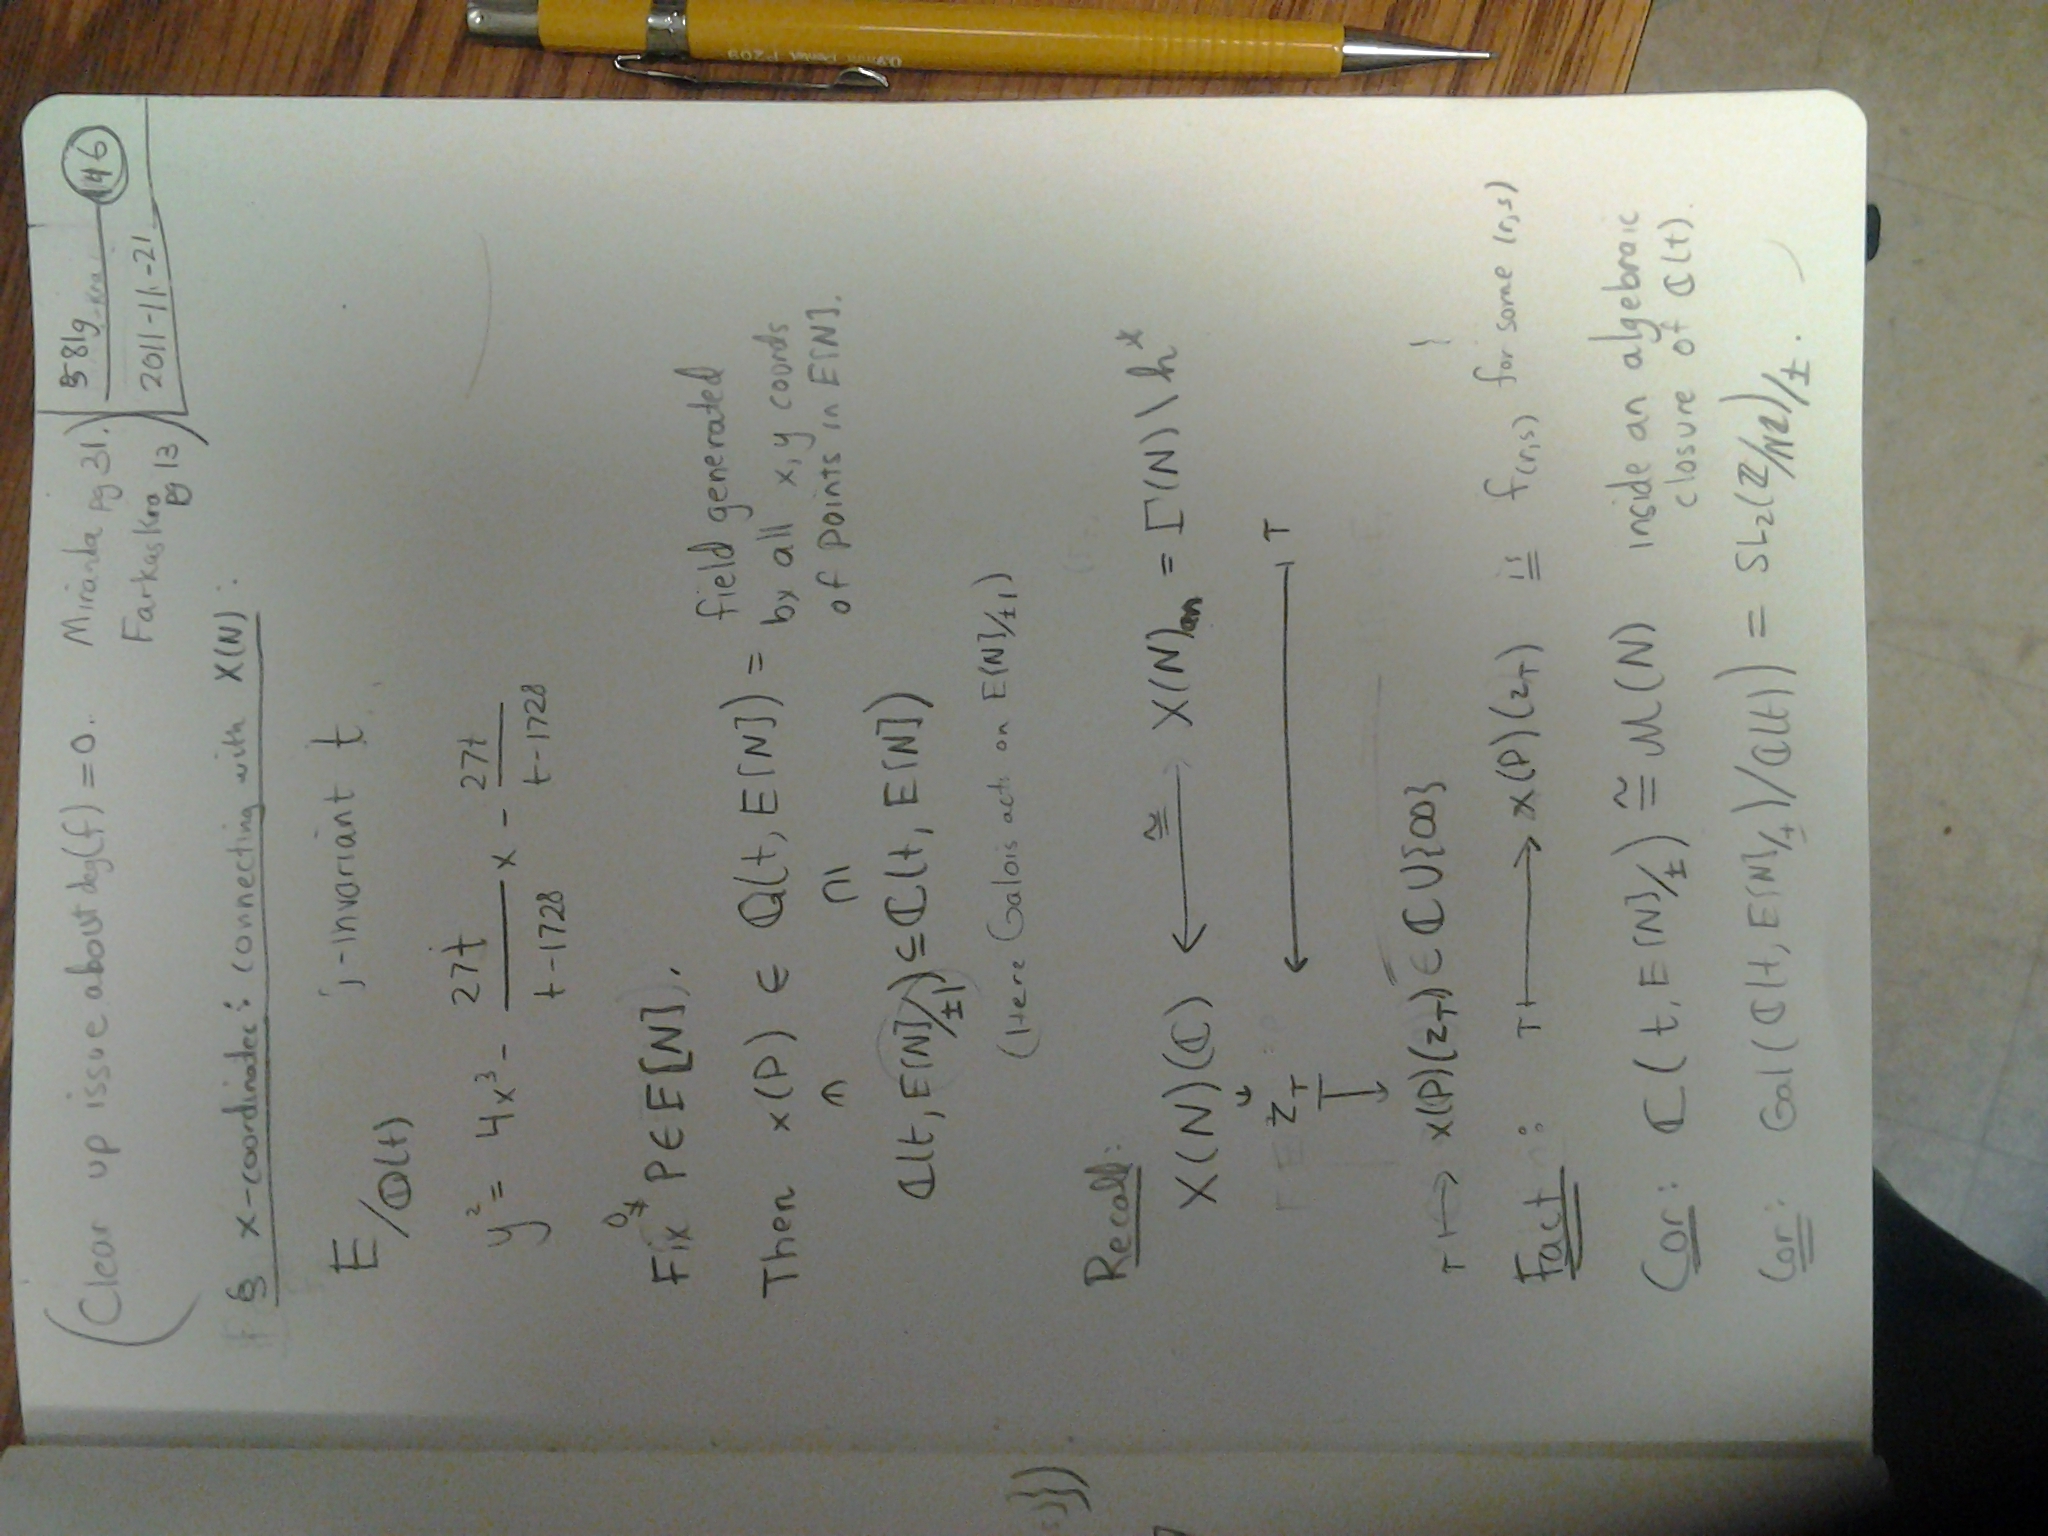 (Clear up issue about deg(f) = 0. Miranda pg 31.
Farkas Kra pg 13)
581g
146
2011-11-21
§ x-coordinates: connecting with X(N):
E/Q(t) j-invariant t
y² = 4x³ - 27t/(t-1728) x - 27t/(t-1728)
Fix 0≠ P ∈ E[N].
Then x(P) ∈ Q(t, E[N]) = field generated
by all x, y coords
of points in E[N].
∩ ∩|
C(t, E[N]/±1) ⊆ C(t, E[N])
(Here Galois acts on E[N]/±1)
Recall:
X(N)(C) ←≅ X(N)an = Γ(N)\h*
z_τ ← τ
τ ↦ x(P)(z_τ) ∈ C∪{∞}
Fact: τ ↦ x(P)(z_τ) is f(r,s) for some (r,s)
Cor: C(t, E[N]/±) ≅ M(N) inside an algebraic
closure of C(t).
Cor: Gal(C(t, E[N]/±)/C(t)) = SL₂(Z/NZ)/±.
0.9mm Pentel P209